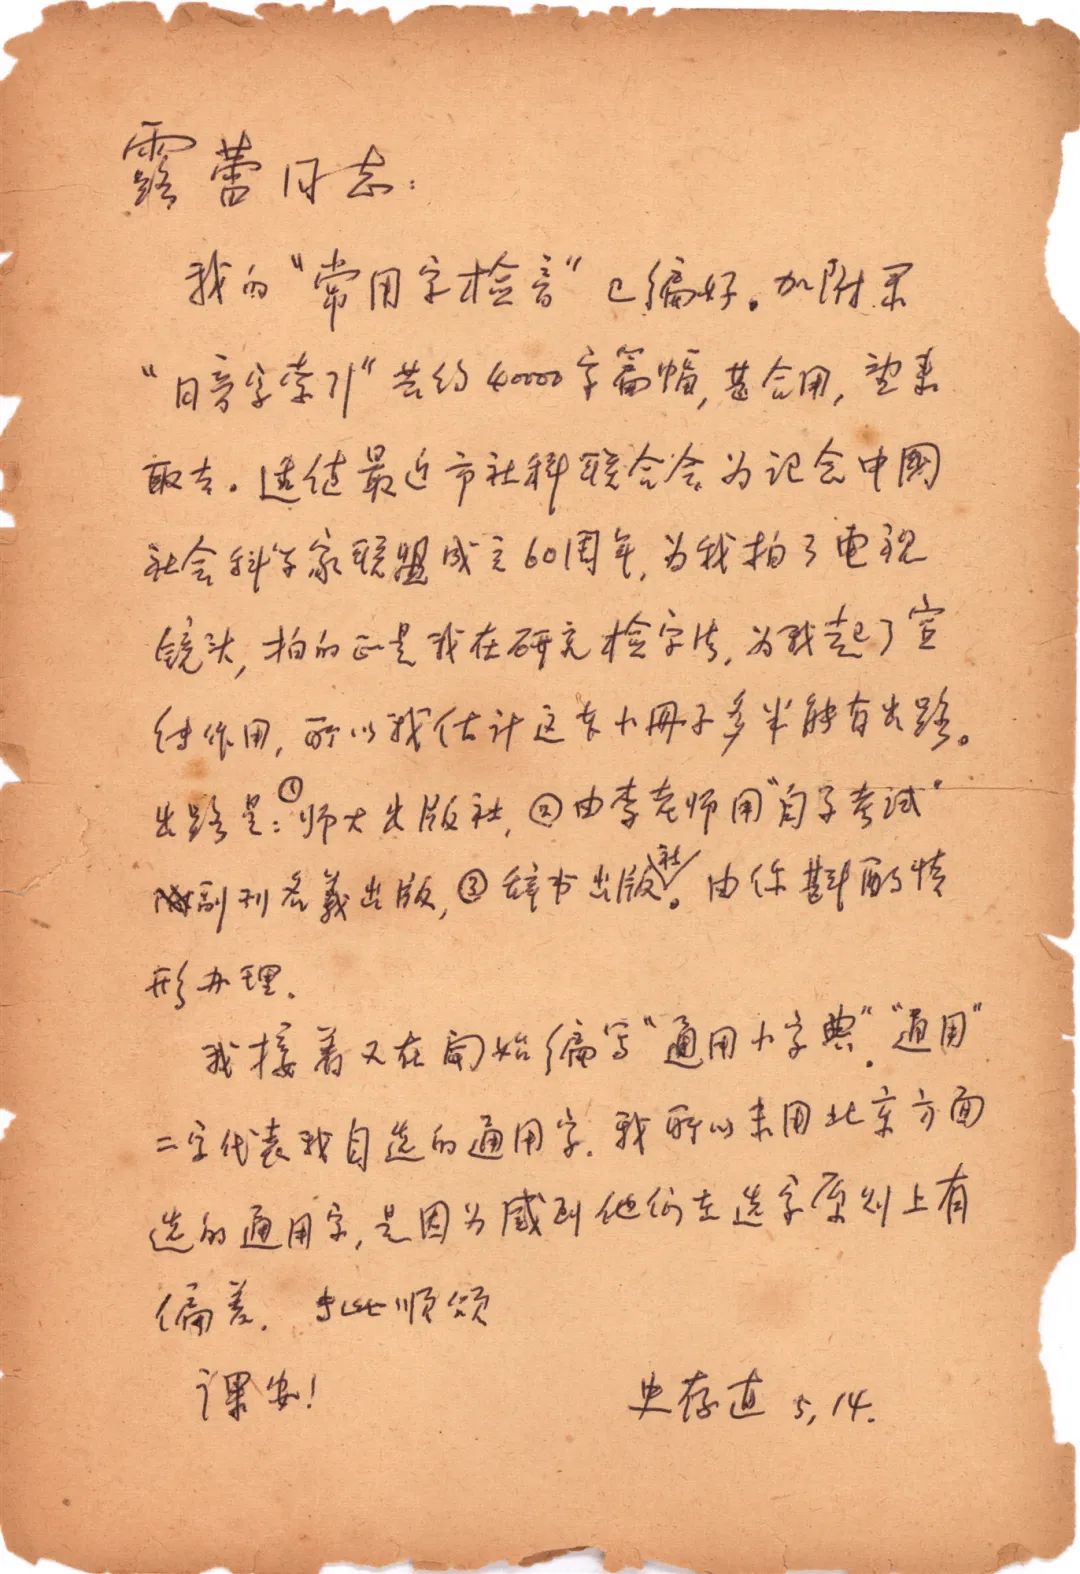 露蕾同志：
我的“常用字检音”已编好。加附录
“同音字索引”共约40000字篇幅，甚合用，望来
取去。适值最近市社科联合会为记念中國
社会科学家联盟成立60周年，为我拍了电视
镜头，拍的正是我在研究检字法，为我起了宣
传作用，所以我估计这本小册子多半能有出路。
出路是：①师大出版社，②由李老师用“自学考试”
副刊名義出版，③辞书出版社。由你斟酌情
形办理。
我接着又在开始编写“通用小字典”。“通用”
二字代表我自选的通用字。我所以未用北京方面
选的通用字，是因为感到他们在选字原则上有
偏差。 专此顺颂
课安！
史存直 5，14.